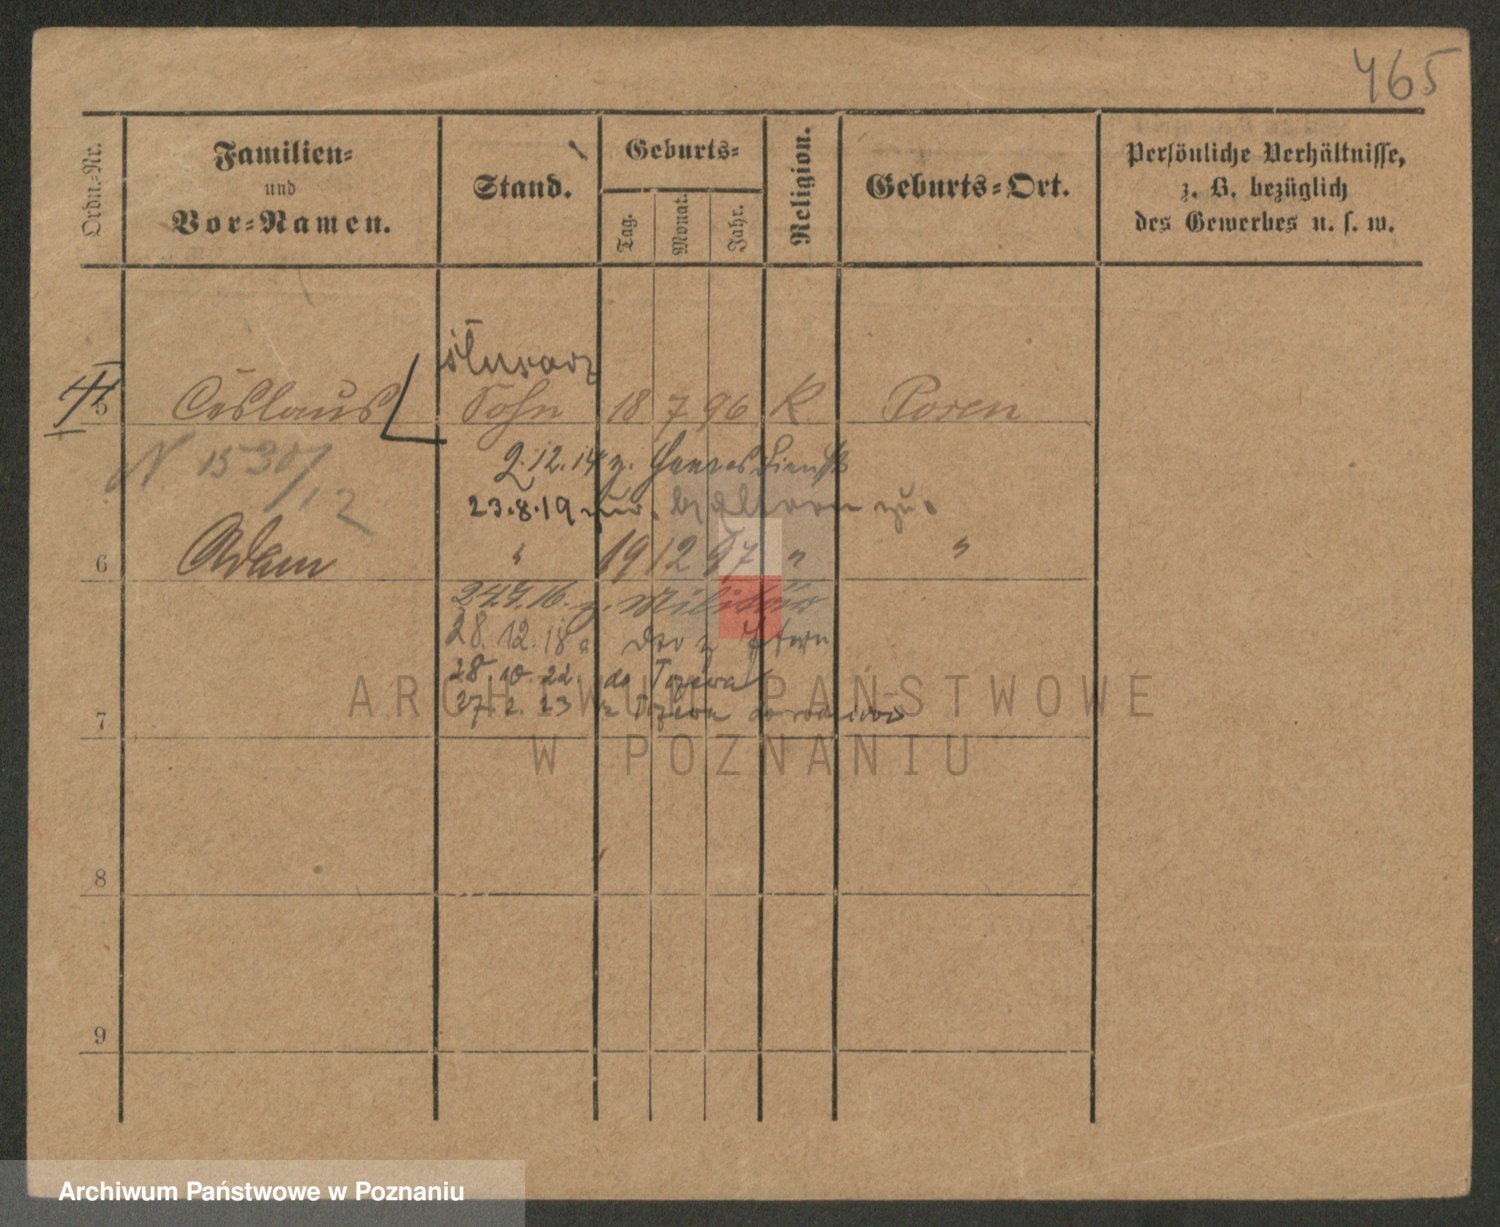 465
Ordn.-Nr.
Familien-
und
Vor-Namen.
Stand.
Geburts-
Tag.
Monat.
Jahr.
Religion.
Geburts-Ort.
Persönliche Verhältnisse,
z. B. bezüglich
des Gewerbes u. s. w.
ślusarz
5 Ceslaus Sohn 18 7 96 K. Posen
N 1530/12
2.12.14 z. Heeresdienst
23.8.19 zu.
6 Adam " 19 12 97 " "
16. z. Militär
28.12.18
28.10.22. do Tczewa
27.2.23 z Tczewa
7
8
9
ARCHIWUM PAŃSTWOWE
W POZNANIU
Archiwum Państwowe w Poznaniu